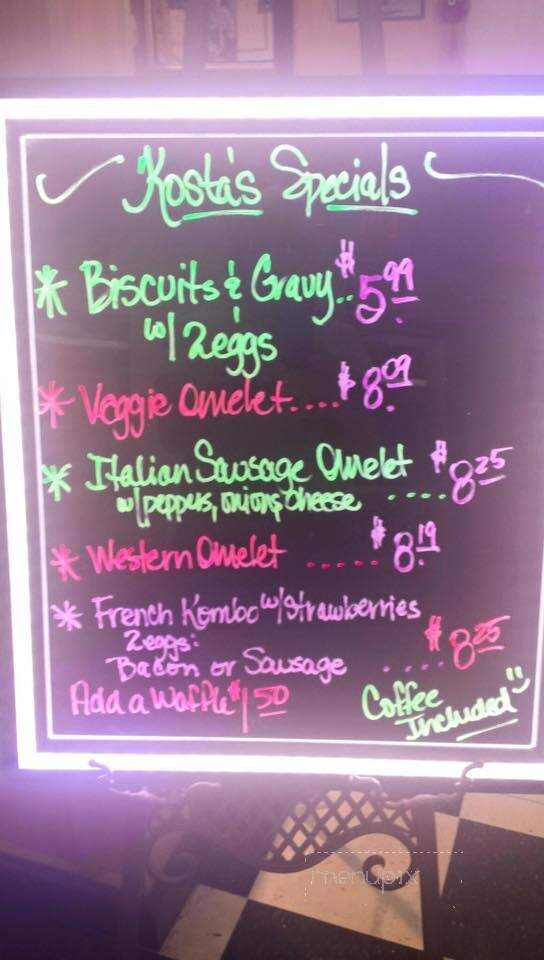 Kosta's Specials
* Biscuits & Gravy.. $5.99
w/ 2 eggs
* Veggie Omelet.... $8.09
* Italian Sausage Omelet $8.25
w/ peppers, onions, cheese ....
* Western Omelet ..... $8.19
* French Kombo w/ Strawberries
2 eggs:
Bacon or Sausage .... $8.25
Add a Waffle $1.50
Coffee
Included
menupix